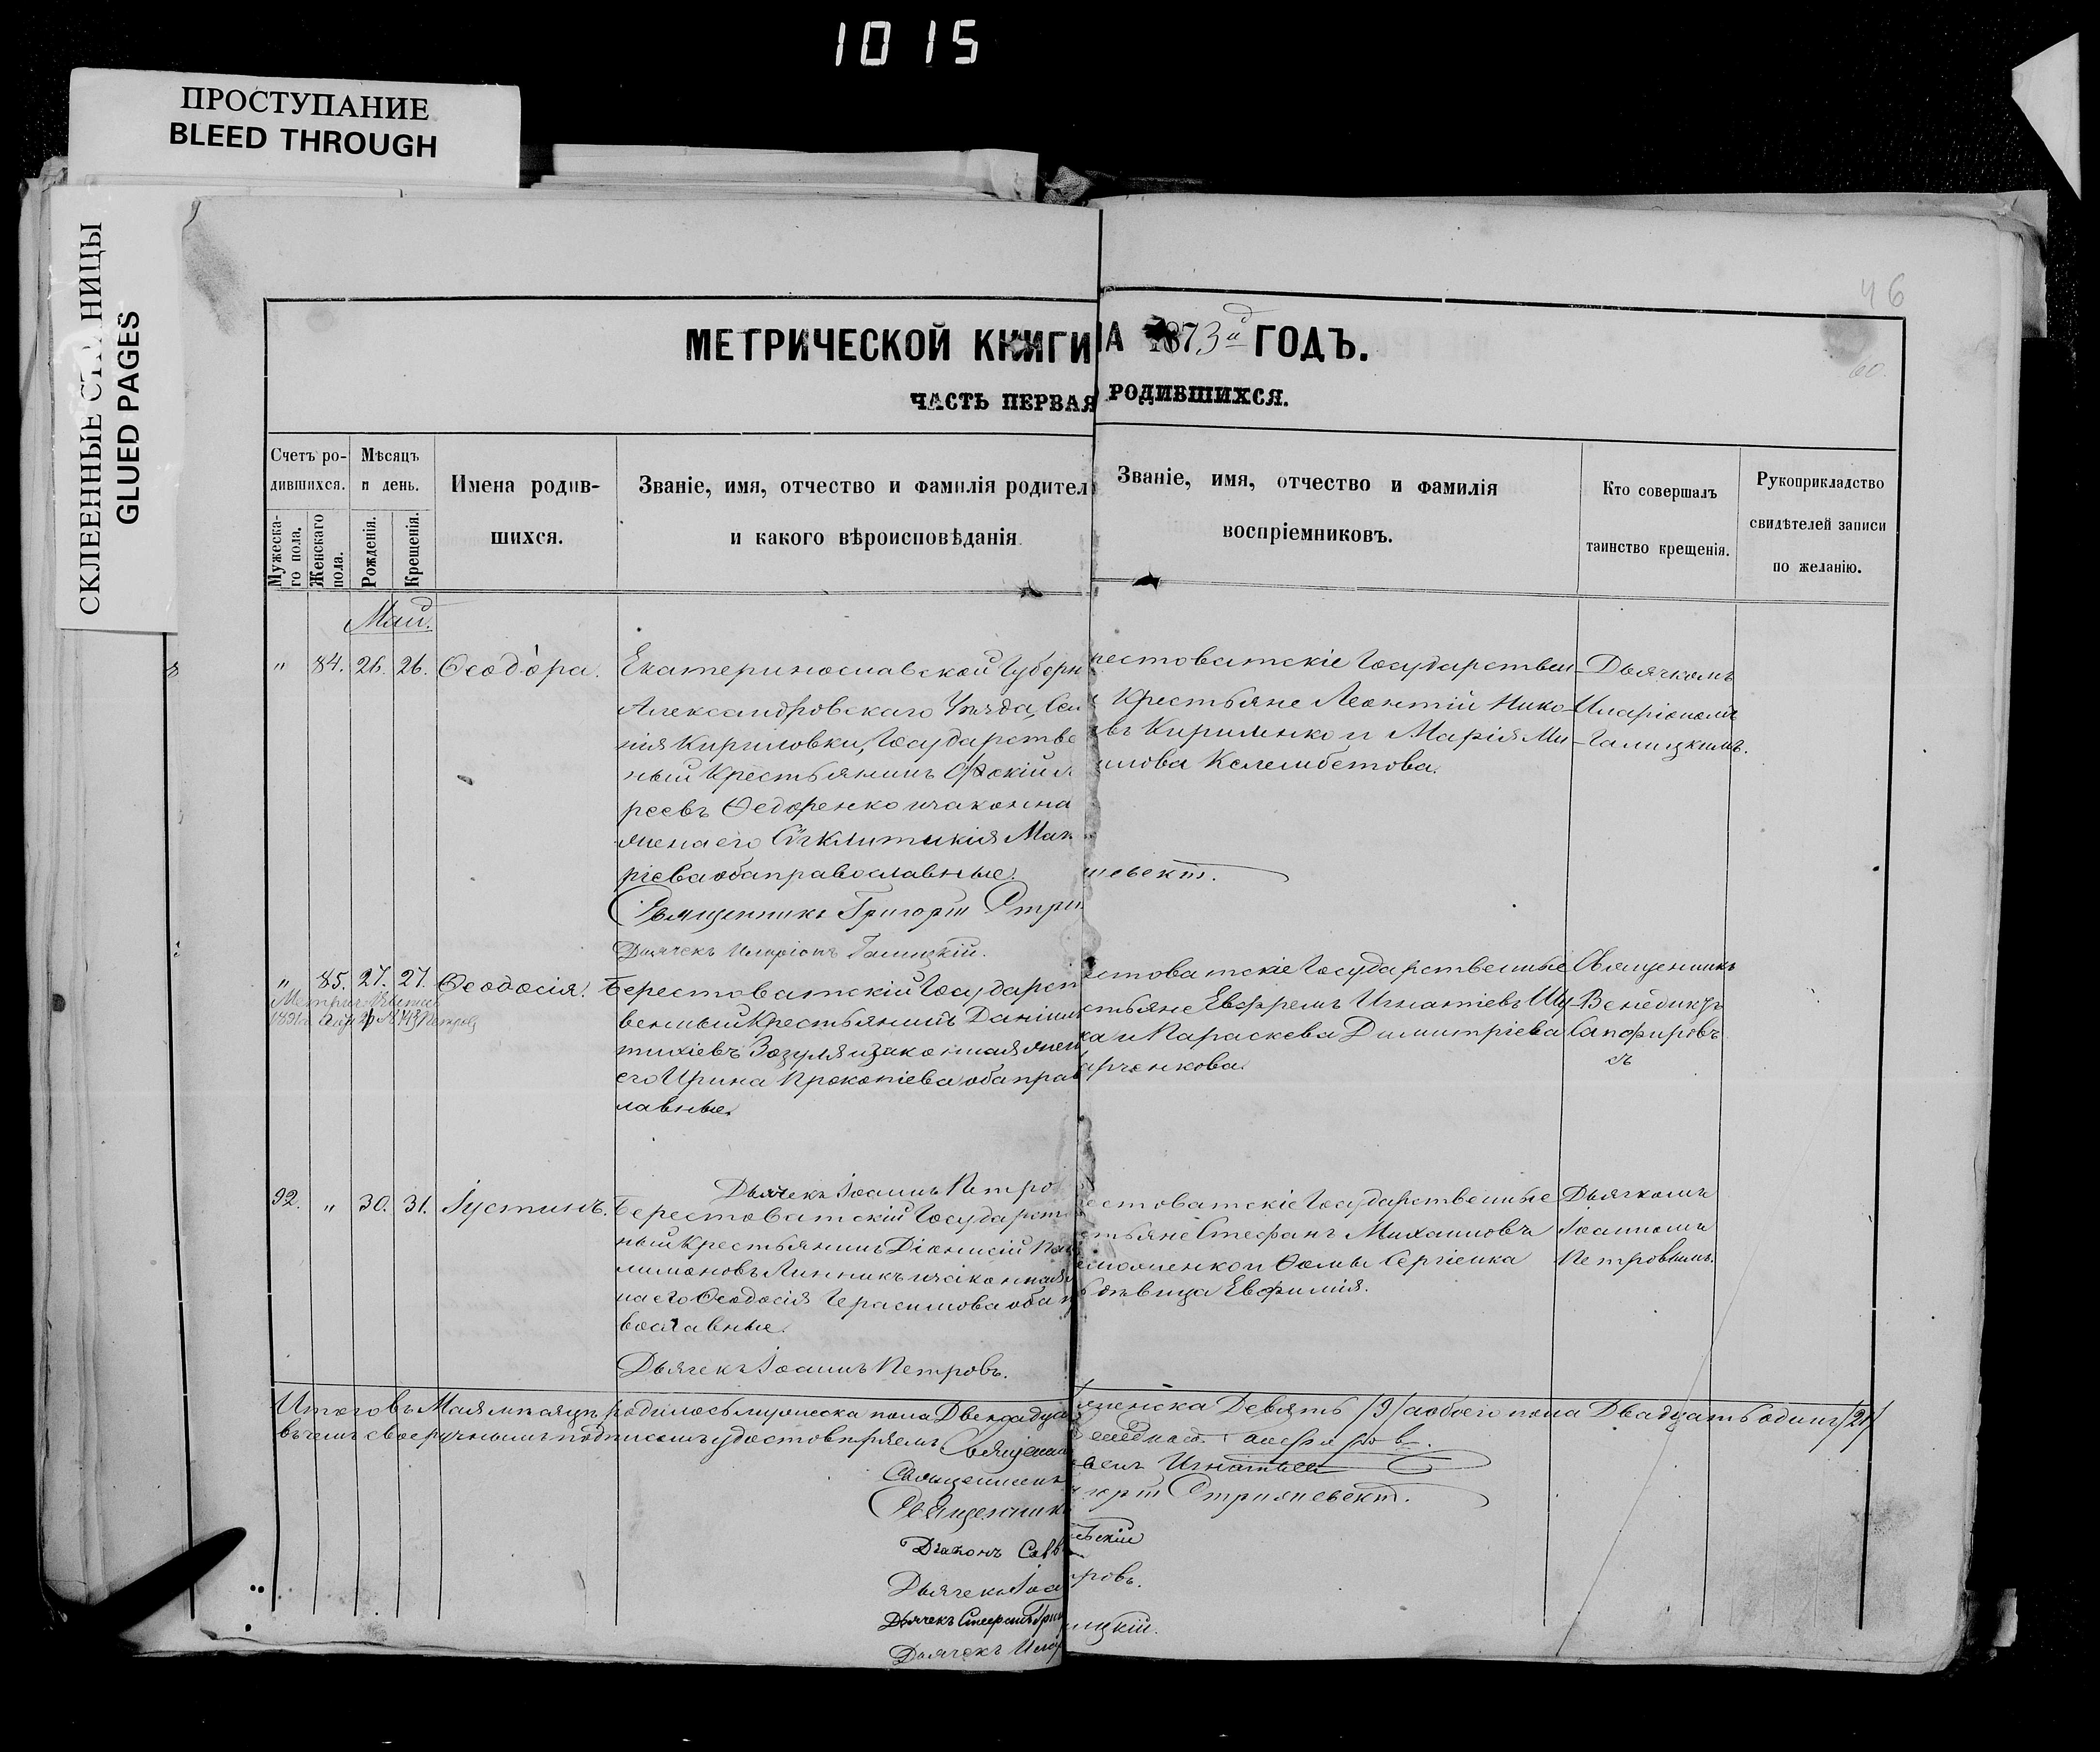 1015
ПРОСТУПАНИЕ
BLEED THROUGH
СКЛЕЕННЫЕ СТРАНИЦЫ
GLUED PAGES
46
60.
МЕТРИЧЕСКОЙ КНИГИ
НА 1873й ГОДЪ.
ЧАСТЬ ПЕРВАЯ
РОДИВШИХСЯ.
Счетъ ро-
дившихся.
Мужеска-
го пола.
Женскаго
пола.
Мѣсяцъ
и день.
Рожденія.
Крещенія.
Имена родив-
шихся.
Званіе, имя, отчество и фамилія родител
и какого вѣроисповѣданія
Званіе, имя, отчество и фамилія
воспріемниковъ.
Кто совершалъ
таинство крещенія.
Рукоприкладство
свидѣтелей записи
по желанію.
Май.
" 84. 26. 26. Ѳеодора.
Екатеринославской Губерн
Александровскаго Уѣзда, Сел
нія Кириловки, Государстве
ный Крестьянинъ
реевъ Ѳедоренко и законна
жена его Сѵнклитикія Мак
ріева оба православные.
Священникъ Григорій Стри
Дьячекъ Иларіонъ Галицкій.
рестоватскіе Государствен-
Крестьяне Леонтій Нико-
въ Кириленко и Марія Ми-
илова Келембетова.
Дьячкомъ
Иларіономъ
Галицкимъ.
" 85. 27. 27. Ѳеодосія.
Берестоватскій Государст
венный Крестьянинъ Даніил
тихіевъ Зозуля и законная жен
его Ирина Прокопіева оба прав
лавные.
естоватскіе Государственные
стьяне Евфремъ Игнатіевъ Шу-
ка и Параскева Димитріева
арченкова.
Священникъ
Венедиктъ
Сапфировъ
съ
Дьячекъ Іоаннъ Петро
92. " 30. 31. Іустинъ.
Берестоватскій Государст
ный Крестьянинъ Діонисій
лимоновъ Линникъ и законная
на его Ѳеодосія Герасимова оба п
вославные.
Дьячекъ Іоаннъ Петровъ.
естоватскіе Государственные
стьяне Стефанъ Михаиловъ
и Ѳомы Сергіенка
дѣвица Евфимія.
Дьячкомъ
Іоанномъ
Петровымъ.
Итого въ Маѣ мѣсяцѣ родилось мужеска пола Двенадца
женска Девять /9/ а обоего пола Двадцать одинъ /21/
въ чемъ своеручнымъ подписомъ удостовѣряемъ. Священни
Священникъ
Игнатьев
Священник
горій Стрижевскій.
Діаконъ Савв
ьскій
Дьячекъ Іоа
тровъ.
Дьячекъ Стефанъ Гри
Дьячекъ Илар
лицкій.